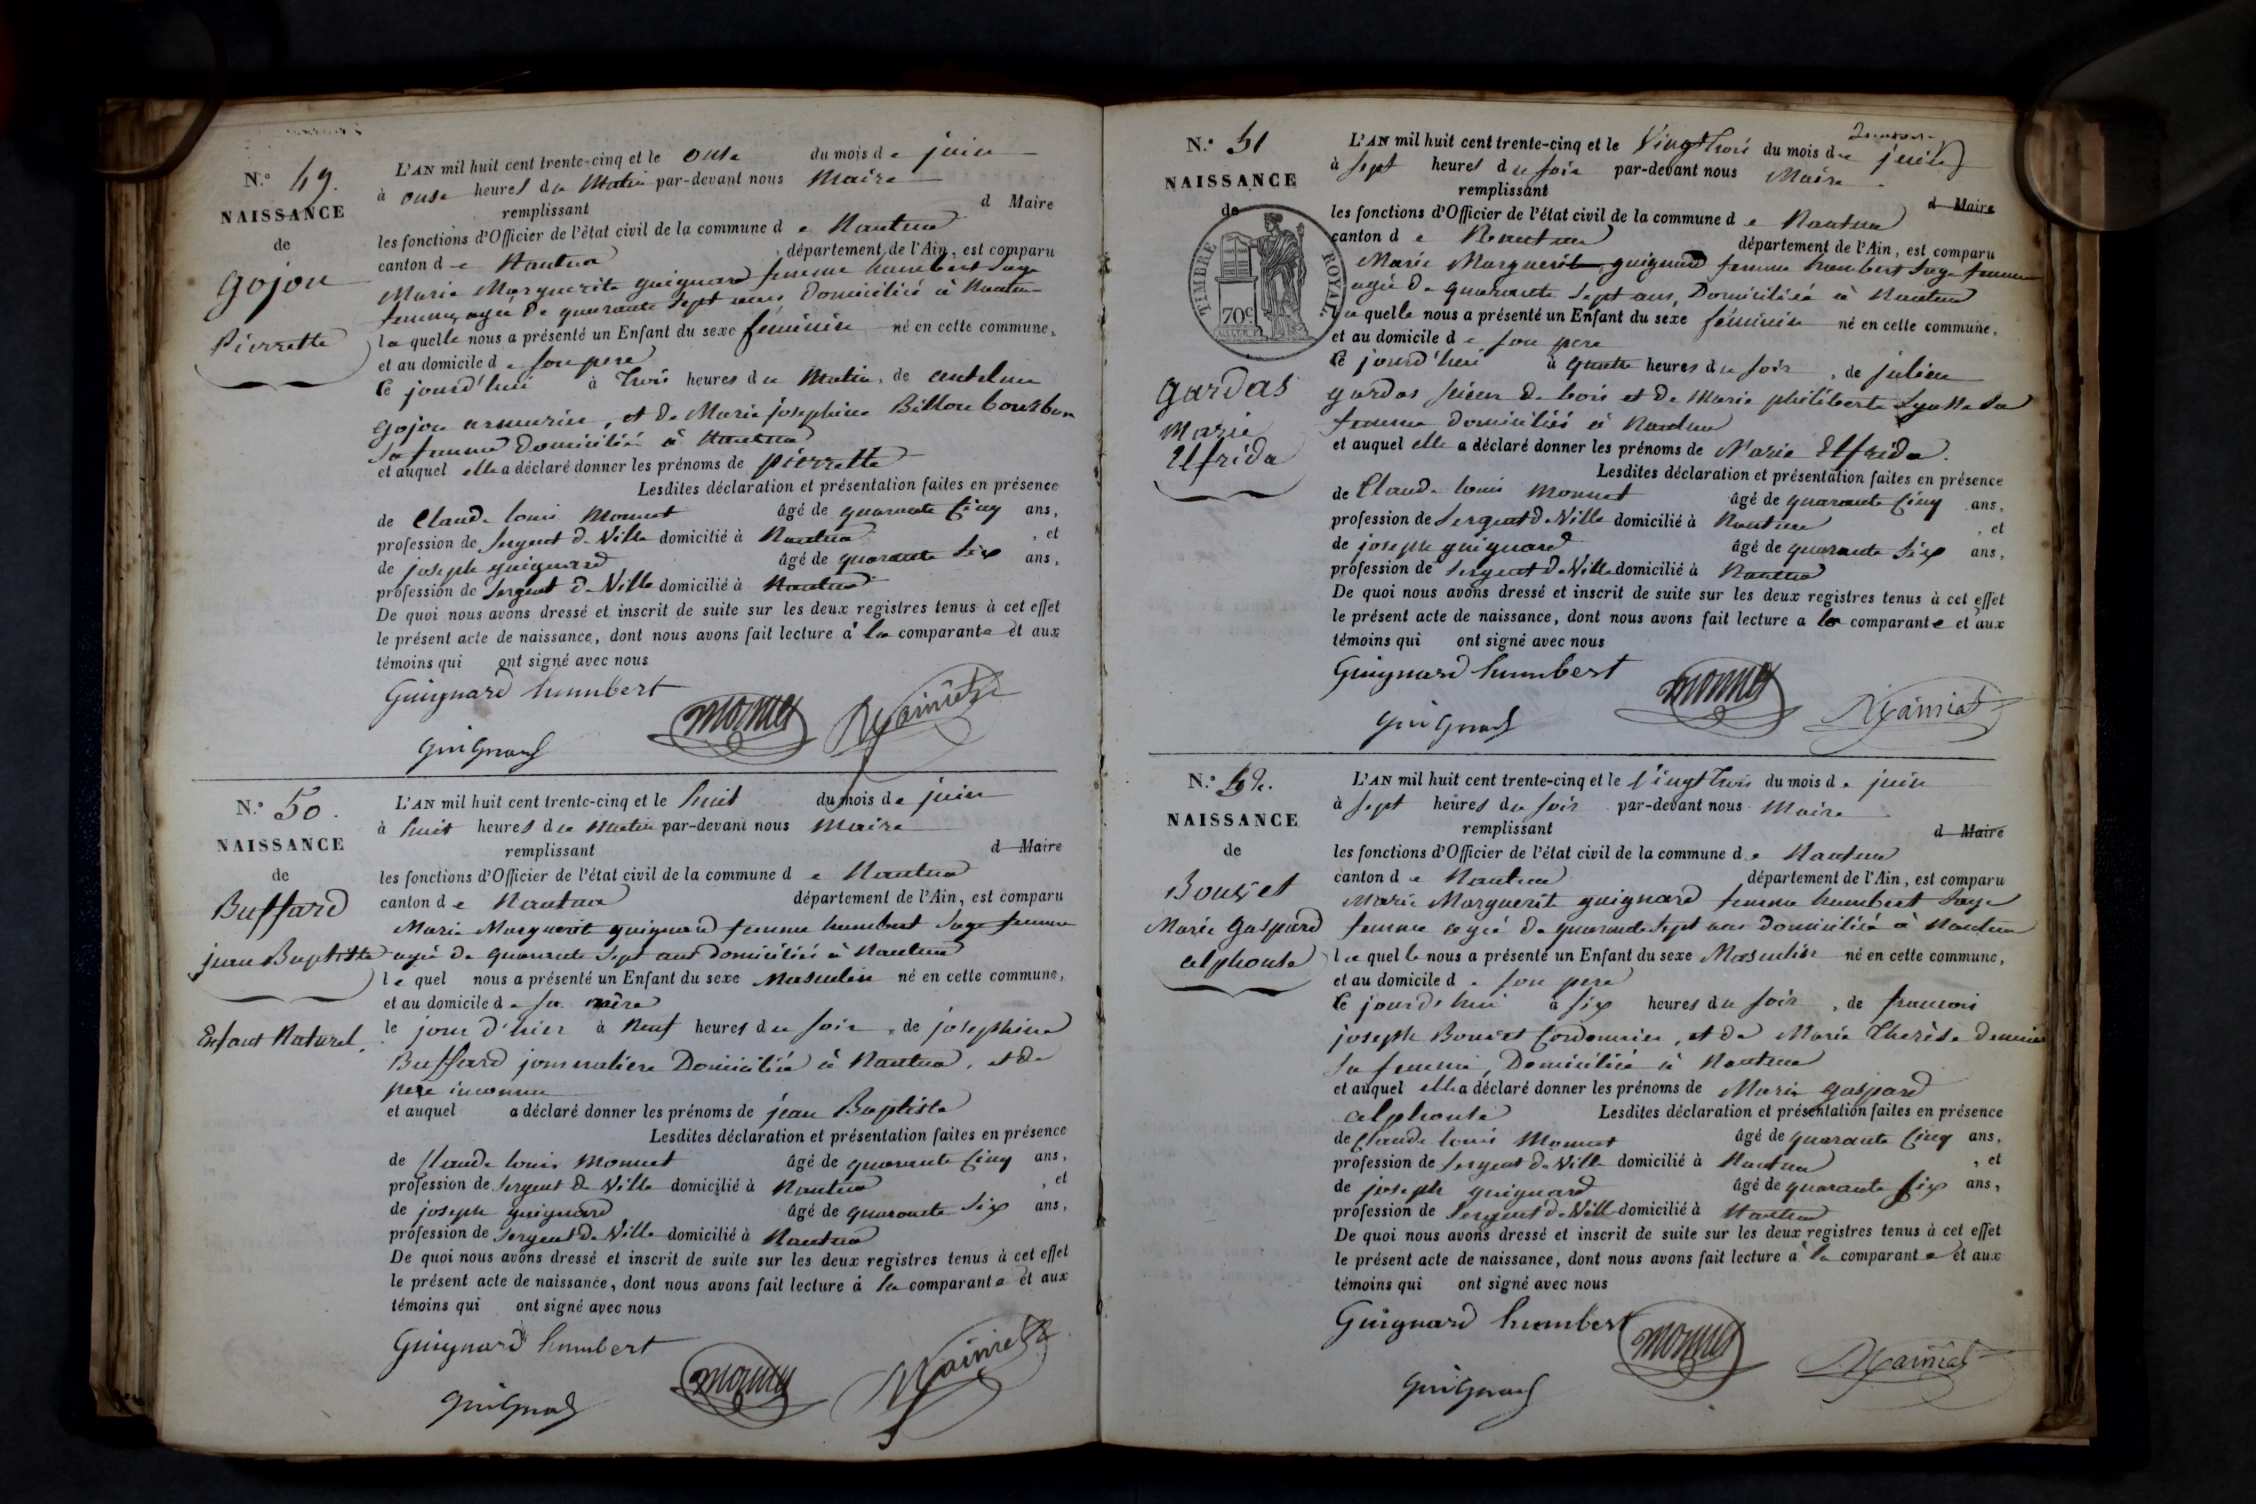 N.º 49.
NAISSANCE
de
gojon
Pierrette
L'AN mil huit cent trente-cinq et le onse du mois de juin
à onse heures du Matin par-devant nous Maire
remplissant d Maire
les fonctions d'Officier de l'état civil de la commune de Nantua
canton de Nantua, département de l'Ain, est comparu
Marie Marguerite guignard femme humbert Sage
femme, agée de quarante Sept ans Domiciliée à Nantua
laquelle nous a présenté un Enfant du sexe féminin né en cette commune,
et au domicile de son pere
Ce jourd'hui à trois heures du Matin, de antelme
gojon armurier, et de Marie josephine Billon bourbon
Sa femme Domiciliés à Nantua
et auquel elle a déclaré donner les prénoms de pierrette
Lesdites déclaration et présentation faites en présence
de Claude louis Monnet âgé de quarante Cinq ans,
profession de Sergent de Ville domicilié à Nantua, et
de joseph guignard âgé de quarante Six ans,
profession de Sergent de Ville domicilié à Nantua
De quoi nous avons dressé et inscrit de suite sur les deux registres tenus à cet effet
le présent acte de naissance, dont nous avons fait lecture à la comparante et aux
témoins qui ont signé avec nous
Guignard humbert
monnet
guignard
N.º 50.
NAISSANCE
de
Buffard
jean Baptiste
Enfant Naturel.
L'AN mil huit cent trente-cinq et le huit du mois de juin
à huit heures du Matin par-devant nous Maire
remplissant d Maire
les fonctions d'Officier de l'état civil de la commune de Nantua
canton de Nantua département de l'Ain, est comparu
Marie Marguerite guignard femme humbert Sage femme
agée de quarante Sept ans domiciliée à Nantua
lequel nous a présenté un Enfant du sexe Masculin né en cette commune,
et au domicile de sa mère
le jour d'hier à Neuf heures du soir, de josephine
Buffard journaliere Domiciliée à Nantua, et de
pere inconnu
et auquel a déclaré donner les prénoms de jean Baptiste
Lesdites déclaration et présentation faites en présence
de Claude louis Monnet âgé de quarante Cinq ans,
profession de Sergent de Ville domicilié à Nantua, et
de joseph guignard âgé de quarante Six ans,
profession de Sergent de Ville domicilié à Nantua
De quoi nous avons dressé et inscrit de suite sur les deux registres tenus à cet effet
le présent acte de naissance, dont nous avons fait lecture à la comparante et aux
témoins qui ont signé avec nous
Guignard humbert
monnet
guignard
N.º 51
NAISSANCE
de
TIMBRE ROYAL
70c
gardas
Marie
Elfrida
L'AN mil huit cent trente-cinq et le Vingt trois du mois de juin
à Sept heures du soir par-devant nous Maire
remplissant d Maire
les fonctions d'Officier de l'état civil de la commune de Nantua
canton de Nantua département de l'Ain, est comparu
Marie Marguerite guignard femme humbert Sage femme
agée de quarante Sept ans, Domiciliée à Nantua
laquelle nous a présenté un Enfant du sexe féminin né en cette commune,
et au domicile de son pere
Ce jourd'hui à quatre heures du soir, de julien
gardas scieur de bois et de Marie philiberte Sa
femme domiciliés à Nantua
et auquel elle a déclaré donner les prénoms de Marie Elfrida.
Lesdites déclaration et présentation faites en présence
de Claude louis Monnet âgé de quarante Cinq ans,
profession de Sergent de Ville domicilié à Nantua, et
de joseph guignard âgé de quarante Six ans,
profession de Sergent de Ville domicilié à Nantua
De quoi nous avons dressé et inscrit de suite sur les deux registres tenus à cet effet
le présent acte de naissance, dont nous avons fait lecture a la comparante et aux
témoins qui ont signé avec nous
Guignard humbert
monnet
guignard
N.º 52.
NAISSANCE
de
Bouvet
Marie Gaspard
alphonse
L'AN mil huit cent trente-cinq et le Vingt trois du mois de juin
à Sept heures du soir par-devant nous Maire
remplissant d Maire
les fonctions d'Officier de l'état civil de la commune de Nantua
canton de Nantua département de l'Ain, est comparu
Marie Marguerite guignard femme humbert Sage
femme agée de quarante Sept ans domiciliée à Nantua
laquelle nous a présenté un Enfant du sexe Masculin né en cette commune,
et au domicile de son pere
Ce jourd'hui à six heures du soir, de francois
joseph Bouvet Cordonnier, et de Marie Therèse
Sa femme, Domiciliés à Nantua
et auquel elle a déclaré donner les prénoms de Marie gaspard
alphonse Lesdites déclaration et présentation faites en présence
de Claude louis Monnet âgé de quarante Cinq ans,
profession de Sergent de Ville domicilié à Nantua, et
de joseph guignard âgé de quarante six ans,
profession de Sergent de Ville domicilié à Nantua
De quoi nous avons dressé et inscrit de suite sur les deux registres tenus à cet effet
le présent acte de naissance, dont nous avons fait lecture à la comparante et aux
témoins qui ont signé avec nous
Guignard humbert
monnet
guignard